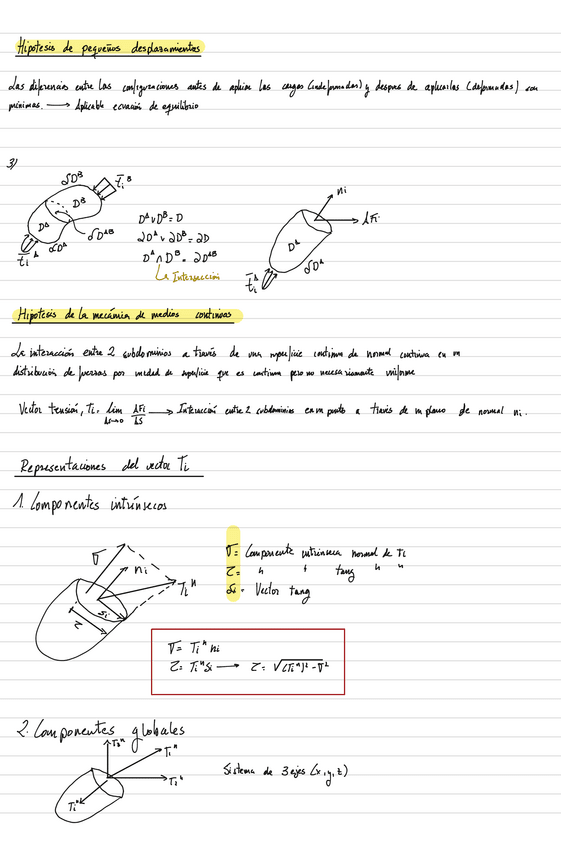 Hipotesis de pequeños desplazamientos
Las diferencias entre las configuraciones antes de aplicar las cargas (indeformadas) y despues de aplicarlas (deformadas) son
mínimas. → Aplicable ecuación de equilibrio
3)
∂Dᴮ
t̄ᵢᴮ
Dᴮ
Dᴬ
∂Dᴬᴮ
∂Dᴬ
t̄ᵢᴬ
Dᴬ ∪ Dᴮ = D
∂Dᴬ ∪ ∂Dᴮ = ∂D
Dᴬ ∩ Dᴮ = ∂Dᴬᴮ
↳ Intersección
nᵢ
ΔFᵢ
Dᴬ
∂Dᴬ
t̄ᵢᴬ
Hipótesis de la mecánica de medios continuos
La interacción entre 2 subdominios a través de una superficie continua de normal continua es una
distribución de fuerzas por unidad de superficie que es continua pero no necesariamente uniforme
Vector tensión, Tᵢ = lim ΔS→0 ΔFᵢ/ΔS → Interacción entre 2 subdominios en un punto a través de un plano de normal nᵢ.
Representaciones del vector Tᵢ
1. Componentes intrínsecas
σ
nᵢ
Tᵢⁿ
sᵢ
τ
σ = Componente intrínseca normal de Tᵢ
τ = " " tang " "
sᵢ = Vector tang
σ = Tᵢⁿ nᵢ
τ = Tᵢⁿ sᵢ → τ = √((Tᵢⁿ)² - σ²)
2. Componentes globales
T₃ⁿ
Tᵢⁿ
T₂ⁿ
T₁ⁿ
Sistema de 3 ejes (x, y, z)